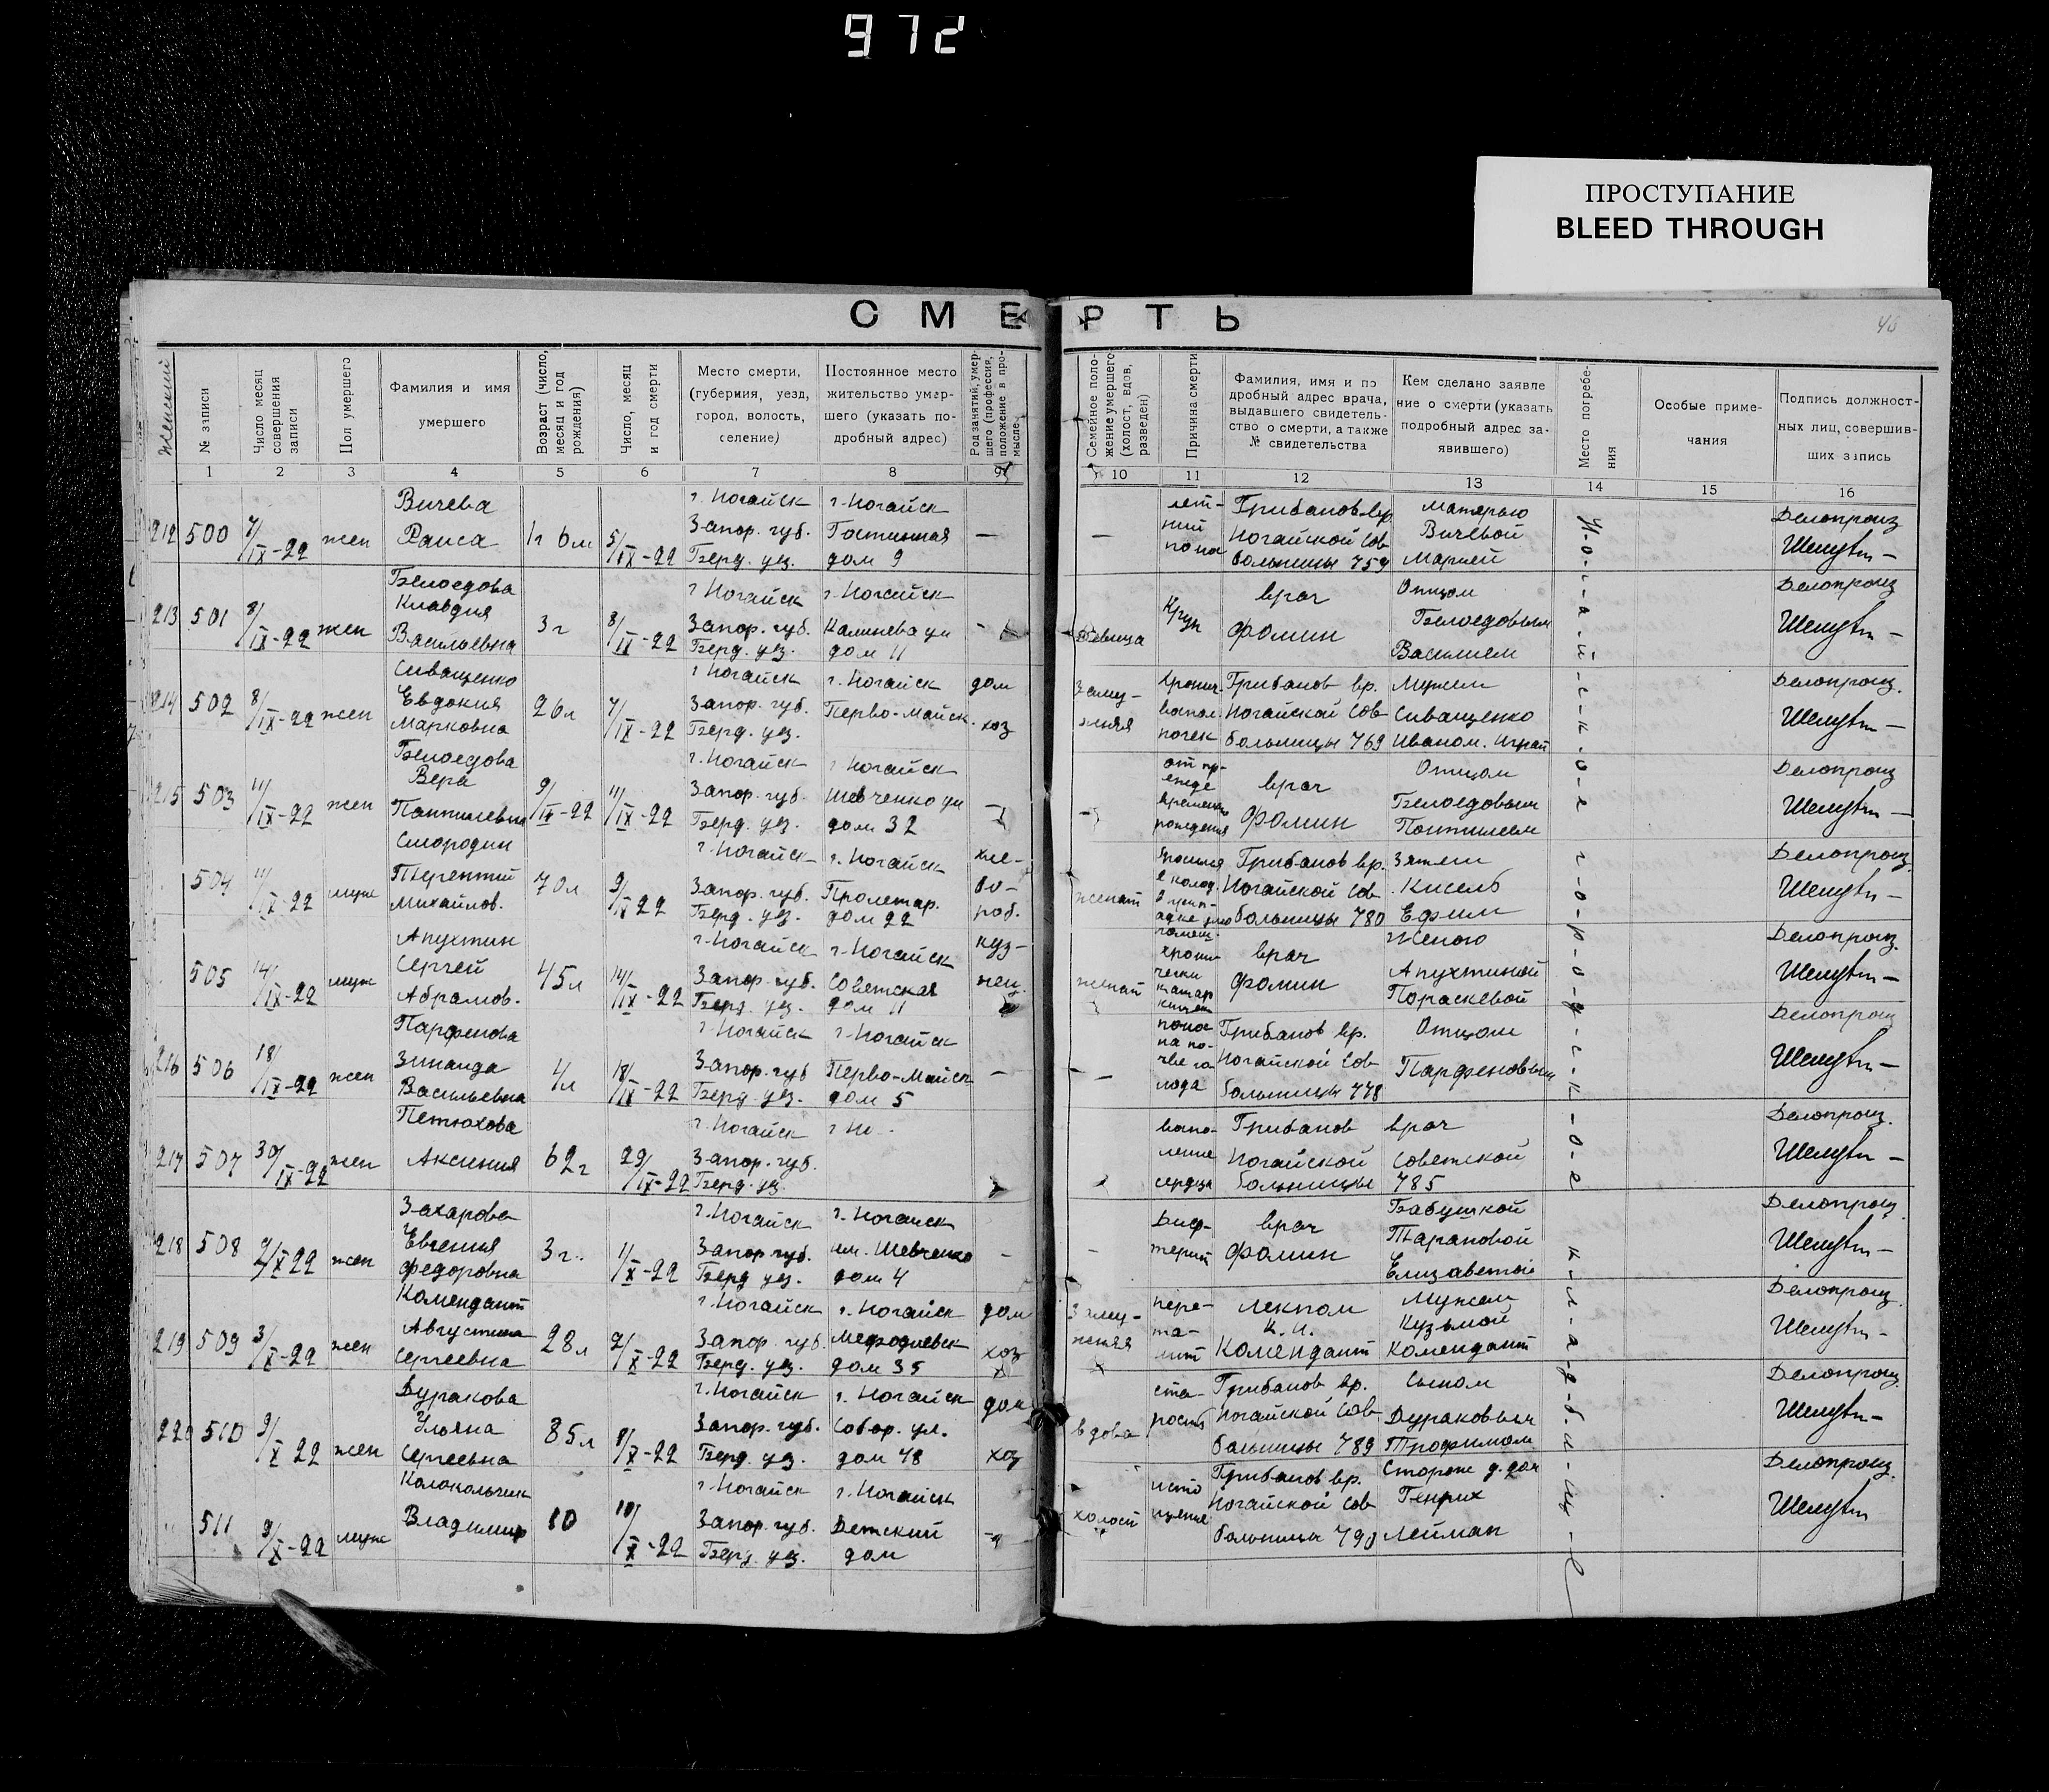 972
ПРОСТУПАНИЕ
BLEED THROUGH
СМЕРТЬ
46
Женский
№ записи
Число месяц совершения записи
Пол умершего
Фамилия и имя умершего
Возраст (число, месяц и год рождения)
Число, месяц и год смерти
Место смерти, (губерния, уезд, город, волость, селение)
Постоянное место жительство умершего (указать подробный адрес)
Род занятий умершего (профессия, положение в промысле
Семейное положение умершего (холост, вдов, разведен)
Причина смерти
Фамилия, имя и подробный адрес врача, выдавшего свидетельство о смерти, а также № свидетельства
Кем сделано заявление о смерти (указать подробный адрес заявившего)
Место погребения
Особые примечания
Подпись должностных лиц, совершивших запись
1 2 3 4 5 6 7 8 9 10 11 12 13 14 15 16
212 500 7/IX-22 жен Вичева Раиса 1г 6м 5/IX-22 г. Ногайск Запор. губ. Берд. уез. г. Ногайск Гостинная дом 9 — — лет-ний понос Грибанов вр. Ногайской Сов больницы 759 матерью Вичевой Марией Делопроиз
213 501 8/IX-22 жен Белоедова Клавдия Васильевна 3г 8/IX-22 г Ногайск Запор. губ. Берд. уез. г. Ногайск Калинева ул дом 11 - девица Круп врач Фомин Отцом Белоедовым Василием Делопроиз
214 502 8/IX-22 жен Сиващенко Евдокия Марковна 26л 7/IX-22 г Ногайск Запор. губ. Берд. уез. г. Ногайск Перво-Майск. дом хоз Заму-жняя хронич. воспал. почек Грибанов вр. Ногайской Сов больницы 769 Мужем Сиващенко Иваном. Делопроиз.
215 503 11/IX-22 жен Белоедова Вера Пантилевна 9/IX-22 11/IX-22 г. Ногайск Запор. губ. Берд. уез. г Ногайск Шевченко ул дом 32 — — от пр-ежде времен рождения врач Фомин Отцом Белоедовым Пантилеем Делопроиз
504 11/IX-22 муж Смородин Терентий Михайлов. 70л 9/IX 22 г. Ногайск Запор. губ. Берд. уез. г. Ногайск Пролетар. дом 22 хле-бо-роб. женат Грибанов вр. Ногайской Сов больницы 780 Зятем Кисель Ефим Делопроиз
505 14/IX-22 муж Апухтин Сергей Абрамов. 45л 14/IX-22 г. Ногайск Запор. губ. Берд уез. г. Ногайск Советская дом 11 куз-нец. женат хрони-чески катар кишек врач Фомин Женою Апухтиной Пораскевой Делопроиз.
216 506 18/IX-22 жен Парфенова Зинаида Васильевна 4л 18/IX-22 г Ногайск Запор. губ Берд. уез. г. Ногайск Перво-Майск дом 5 — — понос на по-чве го-лода Грибанов вр. Ногайской Сов больницы 778 Отцом Парфеновым Делопроиз
217 507 30/IX-22 жен Петюхова Аксиния 62г 29/IX-22 г. Ногайск Запор. губ. Берд. уз. воспа-ление сердца Грибанов врач Ногайской Советской больницы 785 Делопроиз.
218 508 2/X 22 жен Захарова Евгения Федоровна 3г. 1/X-22 г. Ногайск Запор губ. Берд уез. г. Ногайск ул. Шевченко дом 4 - - Диф-терит врач Фомин Бабушкой Тарановой Елизаветой Делопроиз.
219 509 3/X-22 жен Комендант Августина Сергеевна 28л 2/X-22 г. Ногайск Запор губ. Берд. уез. г. Ногайск Мефодиевск дом 35 дом хоз Заму-жняя пере-то-нит Лекпом К. И. Комендант Мужем Кузьмой Комендант Делопроиз
220 510 9/X 22 жен Дуракова Ульяна Сергеевна 85л 8/X-22 г. Ногайск Запор. губ. Берд. уез. г. Ногайск Собор. ул. дом 48 дом хоз вдова ста-рость Грибанов вр. Ногайской Сов больницы 789 Сыном Дураковым Трофимом Делопроиз.
511 9/X-22 муж Колокольчик Владимир 10 10/X-22 г. Ногайск Запор. губ. Берд. уез. г. Ногайск Детский дом холост исто щение Грибанов вр. Ногайской Сов больницы 790 Сторож д. дом Генрих Лейман Делопроиз.
Н-о-г-а-й-с-к-о-е г-о-р-о-д-с-к-о-е к-л-а-д-б-и-щ-е